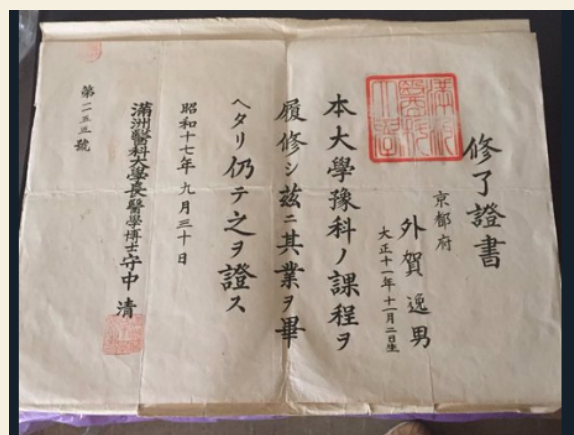 修了證書
京都府
外賀逸男
大正十一年十一月二日生
本大學豫科ノ課程ヲ
履修シ茲ニ其業ヲ畢
ヘタリ仍テ之ヲ證ス
昭和十七年九月三十日
滿洲醫科大學長醫學博士守中清
第二五五號